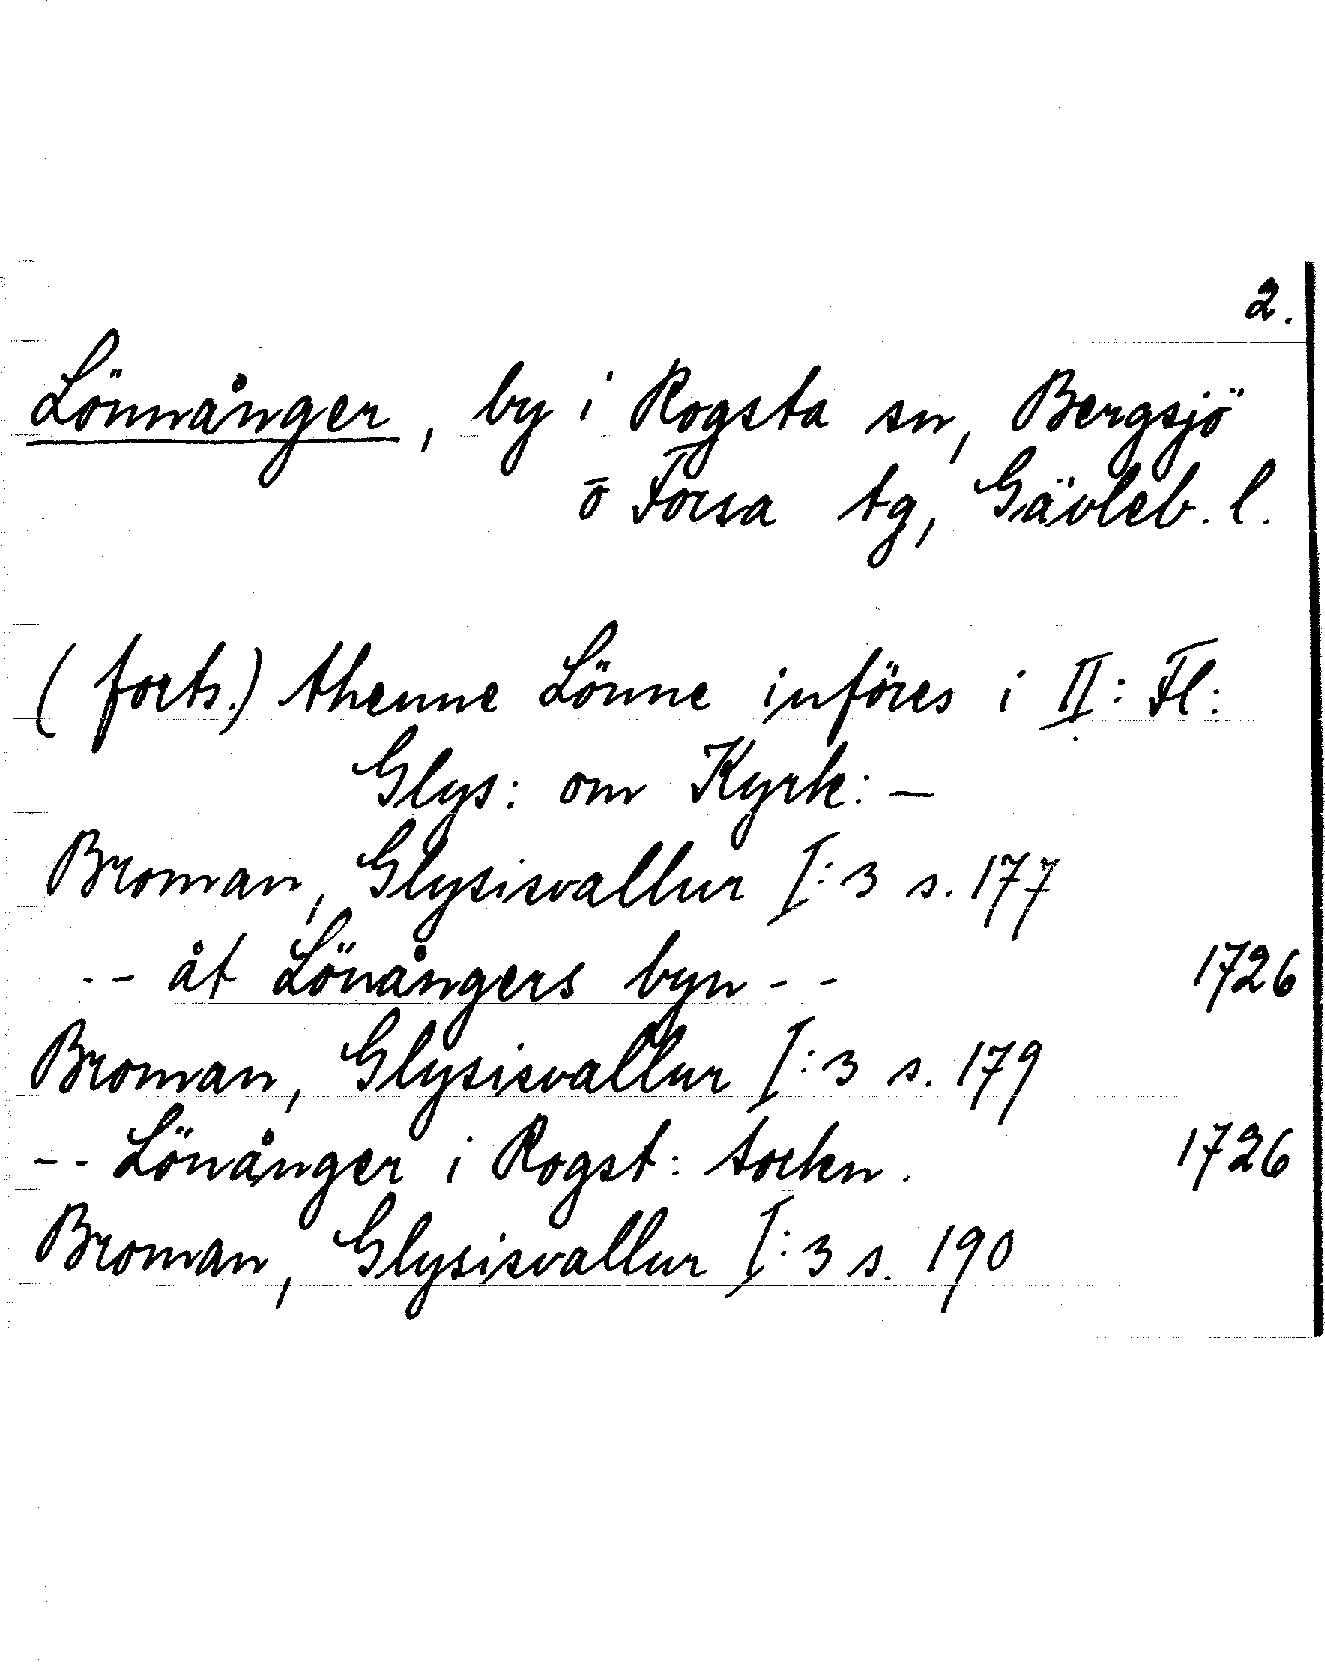 2.
Lönnånger, by i Rogsta sn, Bergsjö
o Forsa tg, Gävleb. l.
(forts.) thenne Lönne införes i II: Fl:
Glys: om Kyrk: —
Broman, Glysisvallur I:3 s. 177
-- åt Lönångers byn -- 1726
Broman, Glysisvallur I:3 s. 179
-- Lönånger i Rogst: sockn. 1726
Broman, Glysisvallur I:3 s. 190